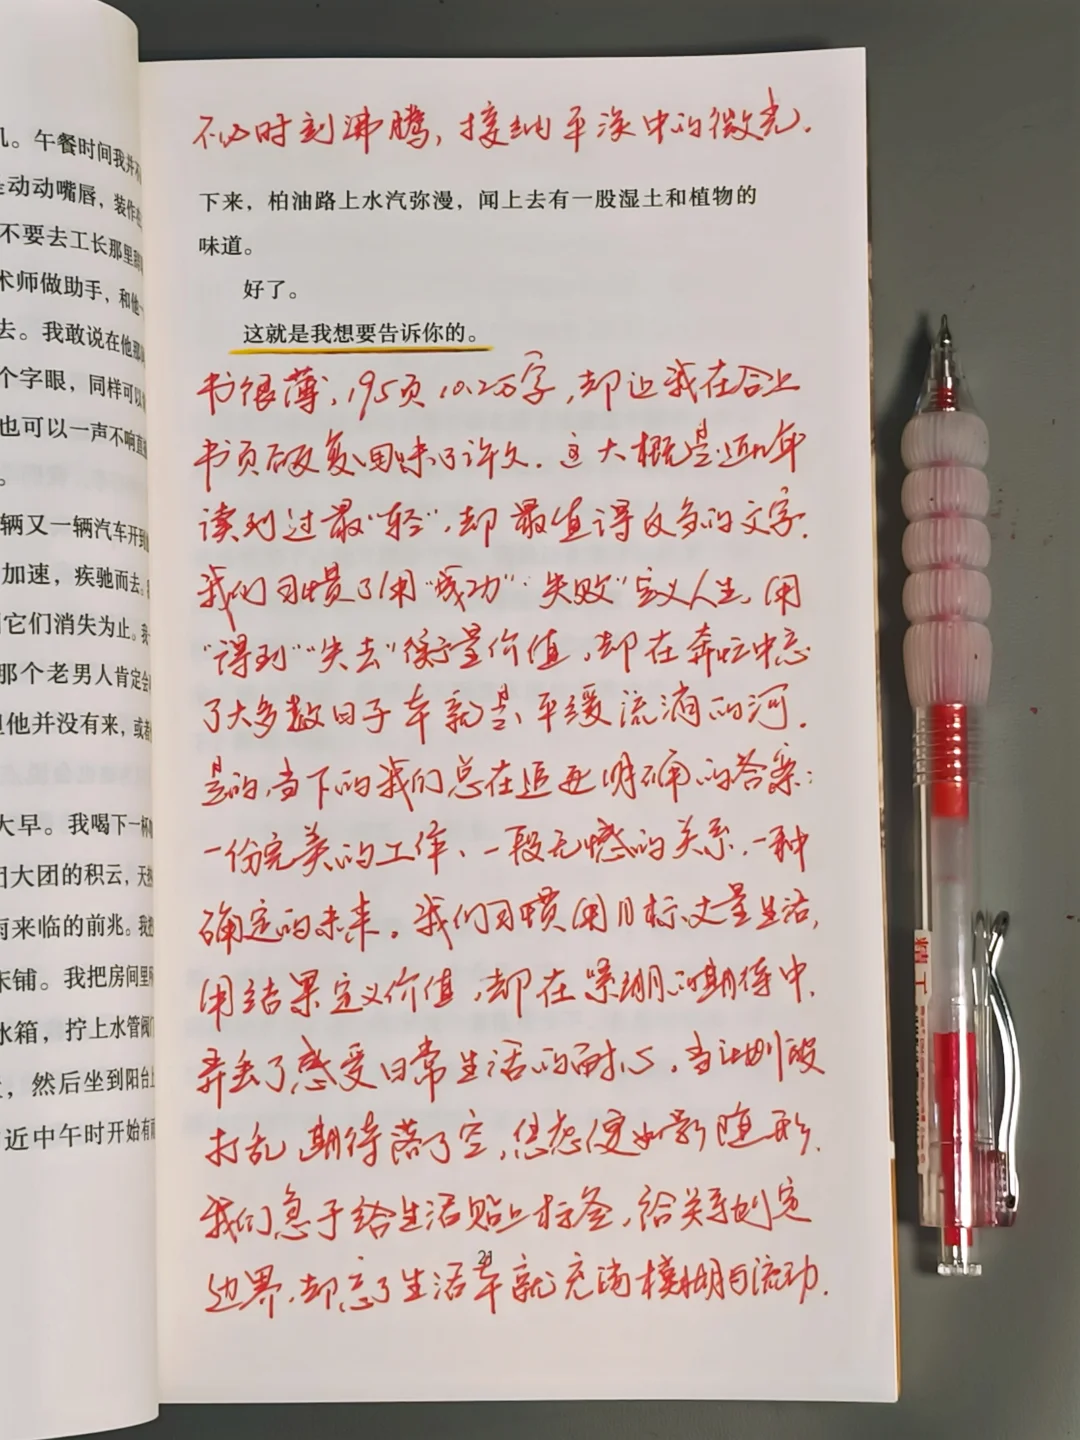 几。午餐时间我并不
动动嘴唇，装作
不要去工长那里
术师做助手，和他一
去。我敢说在他那
个字眼，同样可以
也可以一声不响直
。
辆又一辆汽车开到
加速，疾驰而去。
它们消失为止。我
那个老男人肯定会
但他并没有来，或者
大早。我喝下一杯
团大团的积云，天
雨来临的前兆。我
床铺。我把房间里
水箱，拧上水管阀门
，然后坐到阳台上
近中午时开始有雨
不必时刻沸腾，接纳平淡中的微光.
下来，柏油路上水汽弥漫，闻上去有一股湿土和植物的
味道。
好了。
这就是我想要告诉你的。
书很薄，195页10.2万字，却让我在合上
书页后反复回味了许久. 这大概是近几年
读到过最“轻”，却最值得反刍的文字.
我们习惯了用“成功”“失败”定义人生，用
“得到”“失去”衡量价值，却在奔忙中忘
了大多数日子本就是平缓流淌的河.
是的，当下的我们总在追逐明确的答案：
一份完美的工作、一段无憾的关系，一种
确定的未来。我们习惯用目标丈量生活，
用结果定义价值，却在紧绷的期待中，
弄丢了感受日常生活的耐心。当计划被
打乱，期待落了空，焦虑便如影随形.
我们急于给生活贴上标签，给关系划定
边界，却忘了生活本就充满模糊与流动.
精工